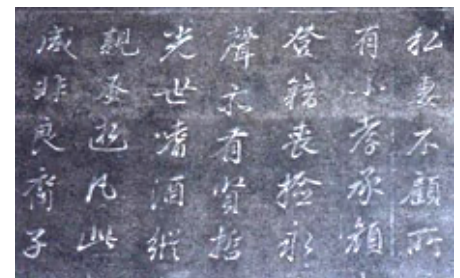 私妻不顧所
有小孝承顏
登籍喪撿永
聲亦有賢哲
光世嗜酒縱
親蚤逝凡此
咸非良裔子